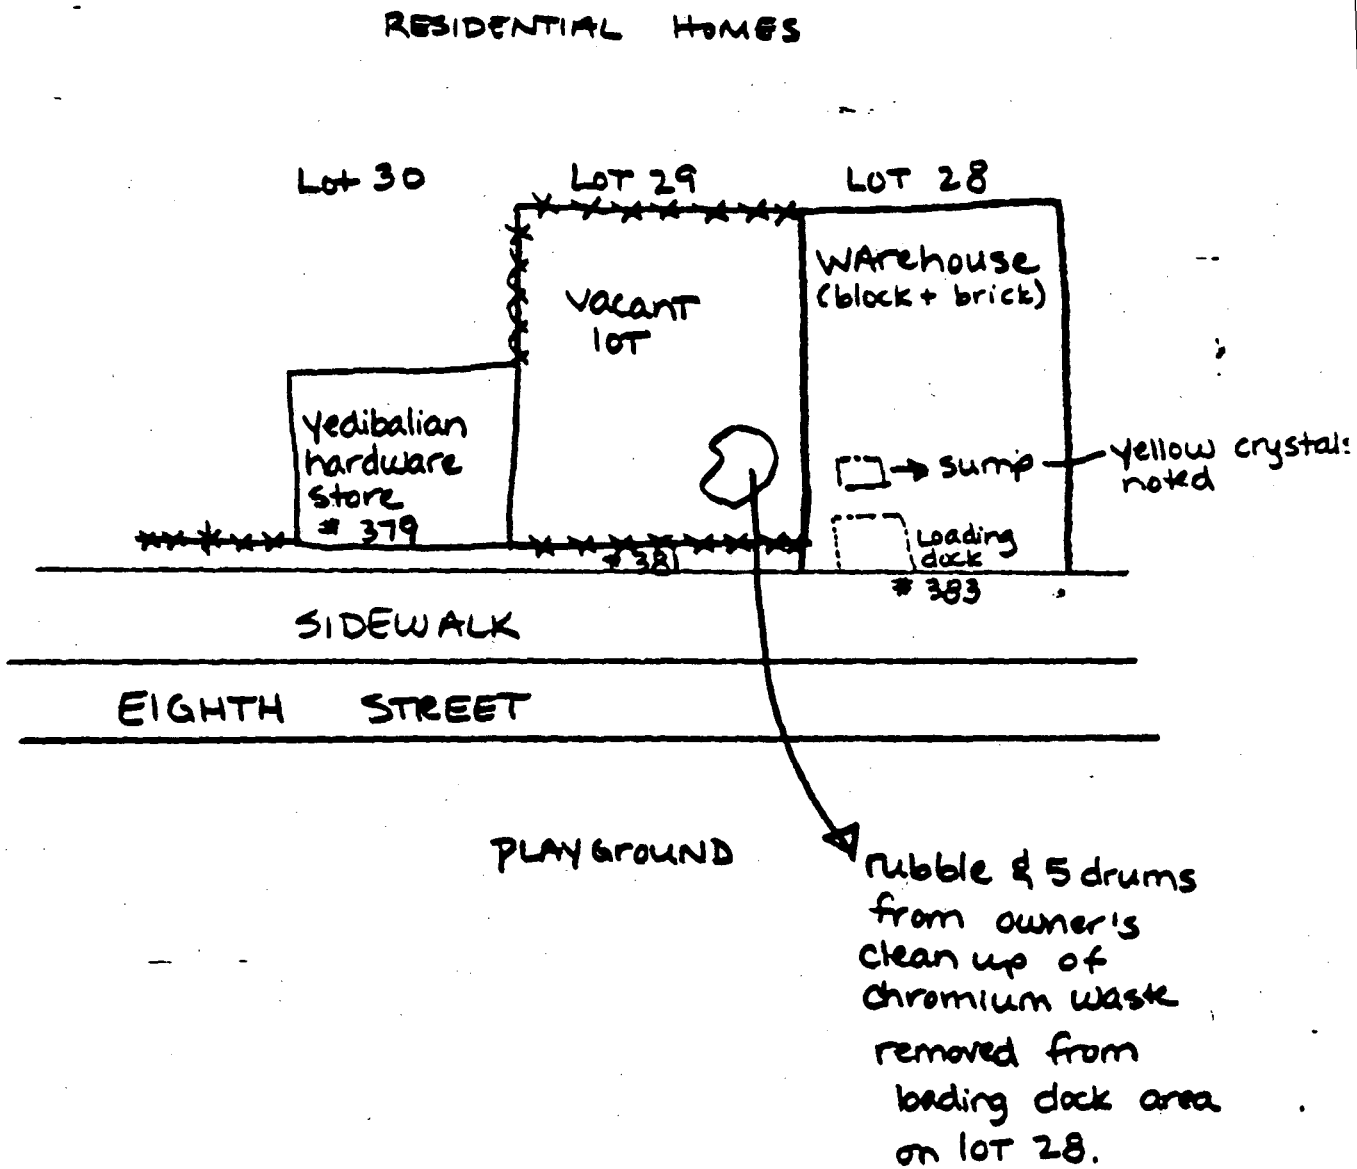 RESIDENTIAL HOMES
Lot 30
LOT 29
LOT 28
WArehouse
(block + brick)
vacant
lOT
Yedibalian
hardware
store
# 379
sump
yellow crystals
noted
Loading
dock
# 381
# 383
SIDEWALK
EIGHTH STREET
PLAYGrOUND
rubble & 5 drums
from owner's
clean up of
chromium waste
removed from
loading dock area
on lOT 28.